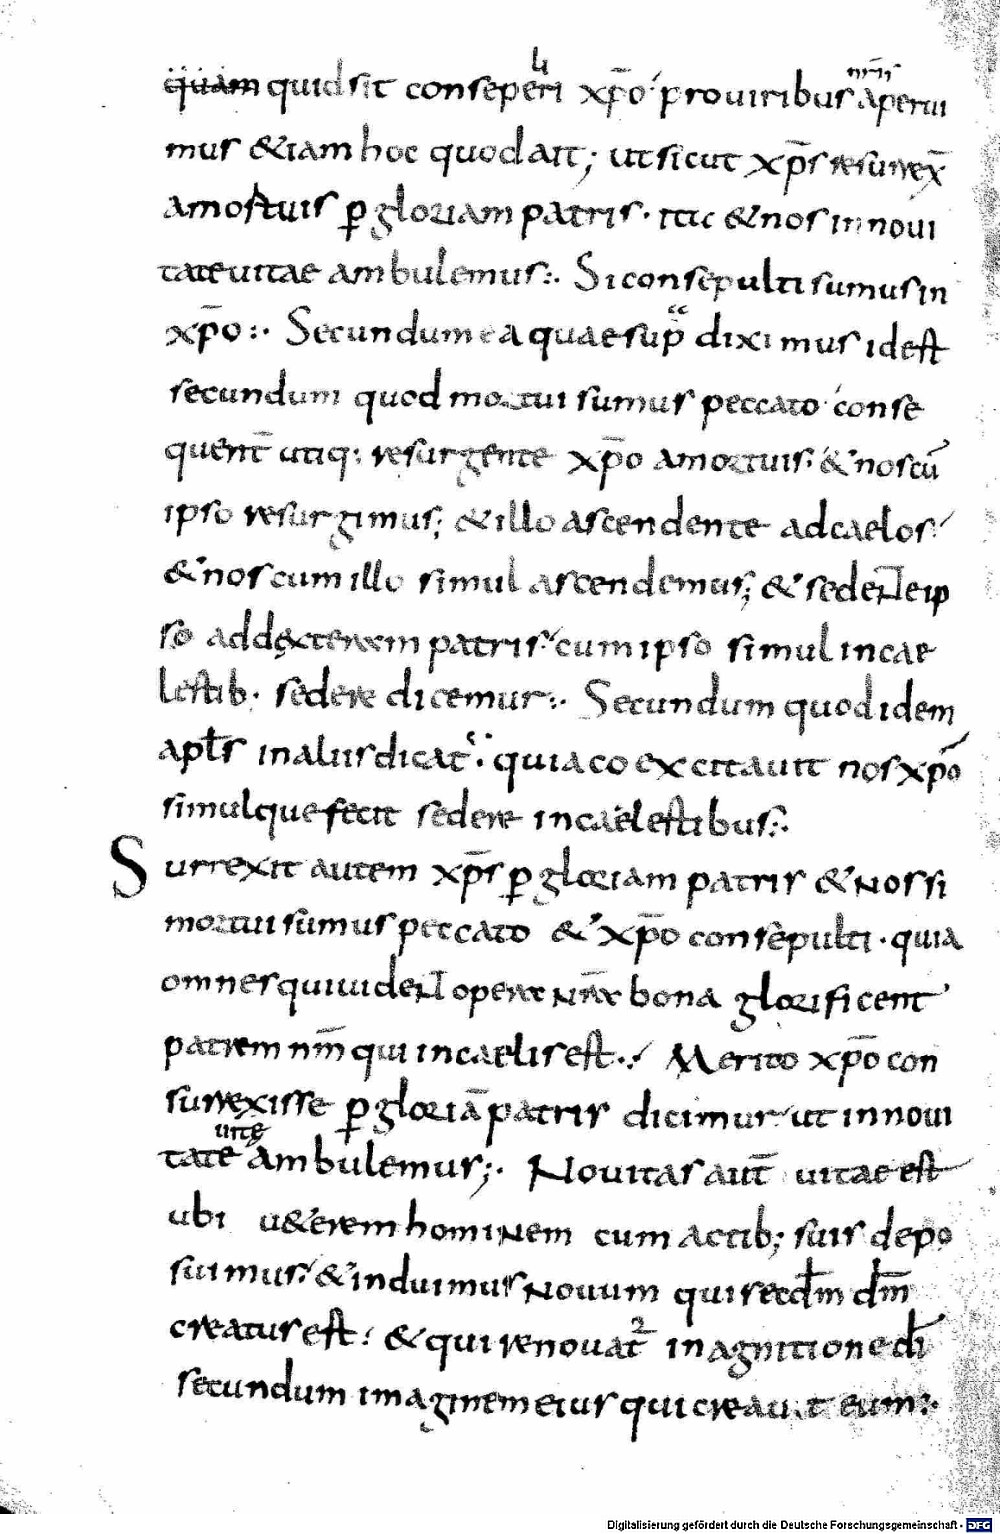 quam quid sit conseperi li xp̄o pro uiribus nr̄is aperui
mus & iam hoc quod ait; ut sicut xp̄s resurrex̄
a mortuis p̱ gloriam patris · itic & nos in noui
tate uitae ambulemus:· Si consepulti sumus in
xp̄o:· Secundum ea quae sup̄ diximus id est
secundum quod mortui sumus peccato conse
quent̄ utiq; resurgente xp̄o a mortuis: & nos cū
ipso resurgimus; & illo ascendente ad caelos
& nos cum illo simul ascendemus; & sedente ip
so ad dexteram patris cum ipso simul in cae
lestib· sedere dicemur:· Secundum quod idem
apl̄s in aliis dicat̄· quia coexcitauit nos xp̄o
simulque fecit sedere in caelestibus:·
Surrexit autem xp̄s p̱ gloriam patris & nos si
mortui sumus peccato & xp̄o consepulti · quia
omnes qui uident opera nr̄a bona glorificent
patrem nr̄m qui in caelis est·: Merito xp̄o con
surrexisse p̱ gloriā patris dicimur ut in noui
tate uitę ambulemus;· Nouitas aut̄ uitae est
ubi u&erem hominem cum actib; suis depo
suimus: & induimus nouum qui secdm̄ dm̄
creatus est: & qui renouat̄ in agnitione di
secundum imaginem eius qui creauit eum:·
Digitalisierung gefördert durch die Deutsche Forschungsgemeinschaft - DFG